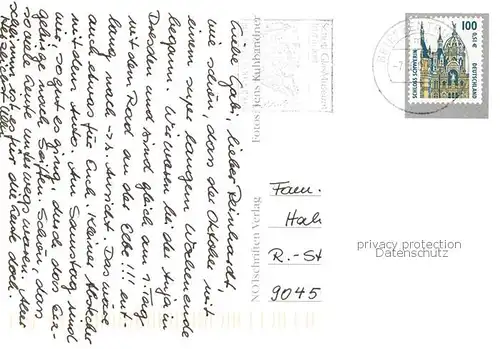 Liebe Gabi, lieber Reinhardt,
wie schön, dass der Oktober mit
einem super langen Wochenende
begann. Wir waren bei der Anja in
Dresden und sind gleich am 1. Tag
mit dem Rad an der Elbe!!! ent-
lang nach s. Ansicht. Das wäre
auch etwas für Euch. Kleiner Abstecher
mit dem Auto. Am Samstag sind
wir, so gut es ging, durch das Erz-
gebirge nach Seiffen. Schön, dass
so viele Autos unterwegs waren. Aber
für die Leute doch.
Herzlichst
Fotos: Jens Kuhbandner
NOtschriften Verlag
100
0,51€
SCHLOSS SCHWERIN
DEUTSCHLAND
Fam.
Hah
R.-St
9045
privacy protection
Datenschutz